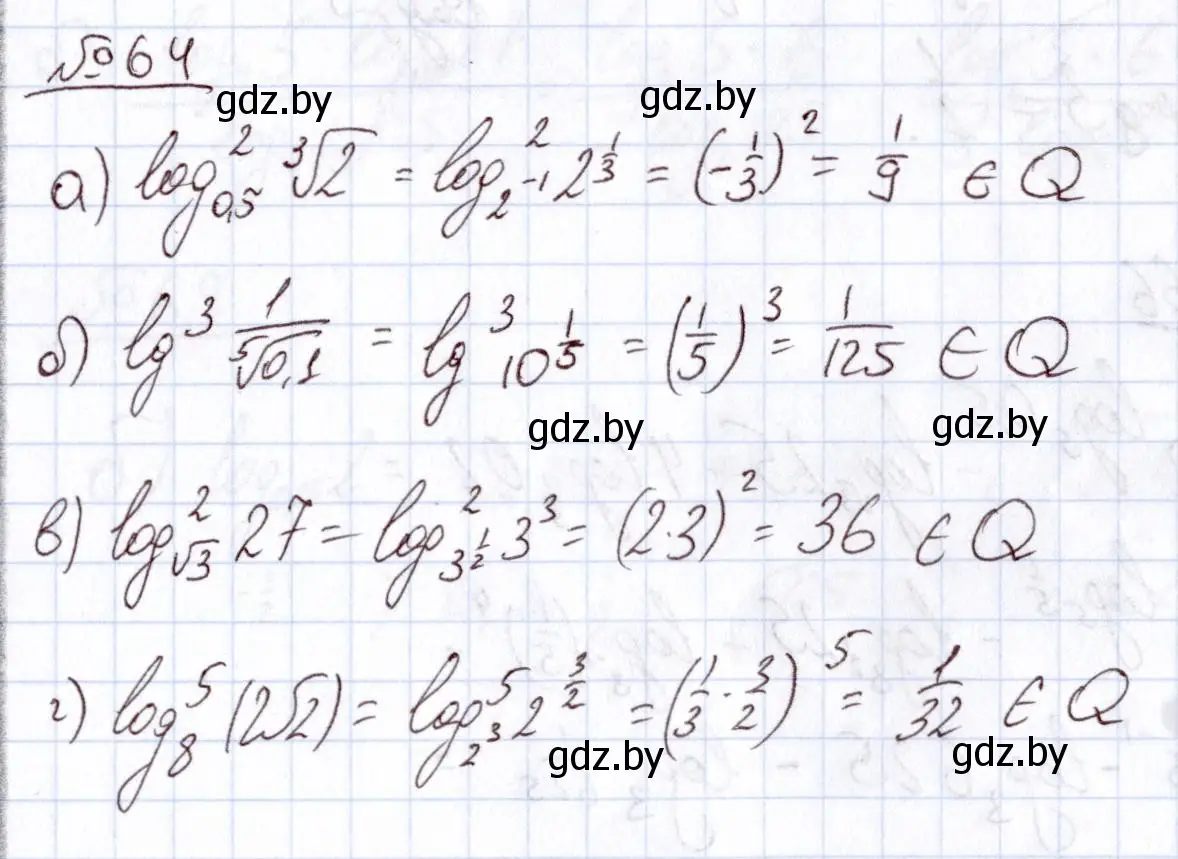 № 64
gdz.by gdz.by
а) log²₀,₅ ∛2 = log²₂₋₁ 2^(1/3) = (-1/3)² = 1/9 ∈ Q
б) lg³ 1/⁵√0,1 = lg³ 10^(1/5) = (1/5)³ = 1/125 ∈ Q
gdz.by gdz.by
в) log²_√3 27 = log²_3^(1/2) 3³ = (2·3)² = 36 ∈ Q
г) log⁵₈ (2√2) = log⁵_2³ 2^(3/2) = (1/3 · 3/2)⁵ = 1/32 ∈ Q
gdz.by gdz.by